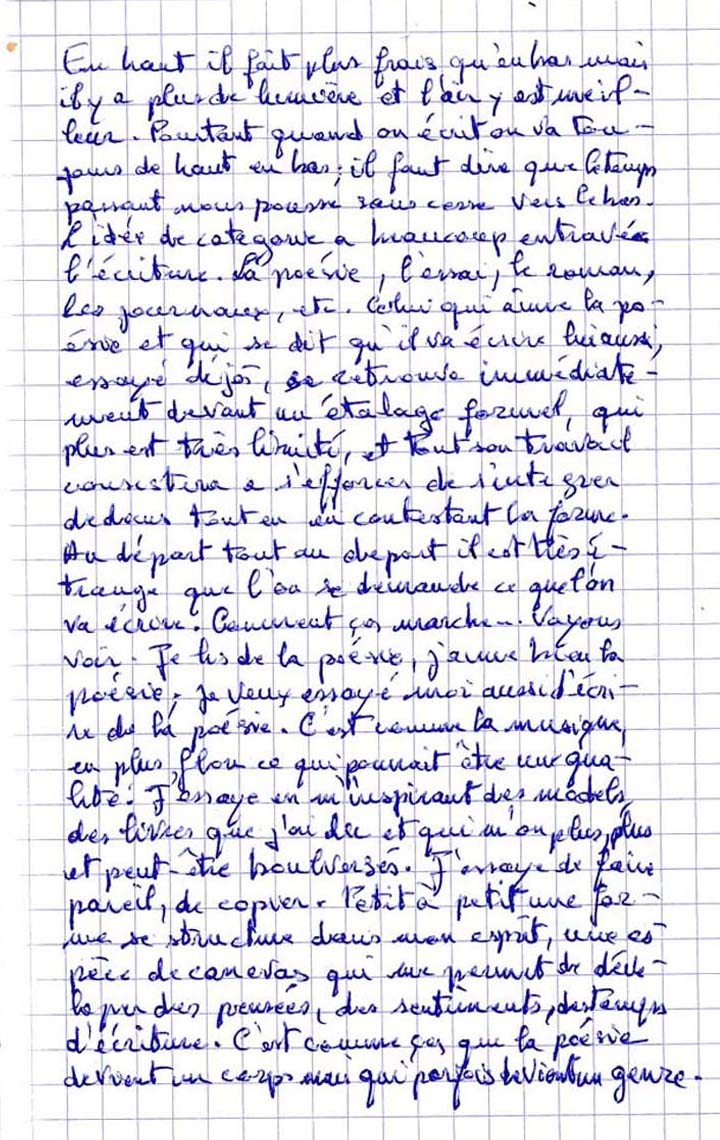 En haut il fait plus frais qu'en bas mais
il y a plus de lumière et l'air y est meil-
leur. Pourtant quand on écrit on va tou-
jours de haut en bas; il faut dire que le temps
passant nous pousse sans cesse vers le bas.
L'idée de catégorie a beaucoup entravée
l'écriture. La poésie, l'essai, le roman,
les journaux, etc. Celui qui aime la po-
ésie et qui se dit qu'il va écrire lui aussi,
essayé déjà, se retrouve immédiate-
ment devant un étalage formel, qui
plus est très limité, et tout son travail
consistera a s'efforcer de s'intégrer
dedans tout en en contestant la forme.
Au départ tout au départ il est très é-
trange que l'on se demande ce que l'on
va écrire. Comment ça marche... Voyons
voir. Je lis de la poésie, j'aime bien la
poésie, je veux essayé moi aussi d'écri-
re de la poésie. C'est comme la musique,
en plus flou ce qui pourrait être une qua-
lité. J'essaye en m'inspirant des models,
des livres que j'ai lu et qui m'on plus, plus
et peut-être boulversés. J'essaye de faire
pareil, de copier. Petit à petit une for-
me se structure dans mon esprit, une es-
pèce de canevas qui me permet de déve-
loper des pensées, des sentiments, des temps
d'écriture. C'est comme ça que la poésie
devient un corps mais qui parfois devient un genre.